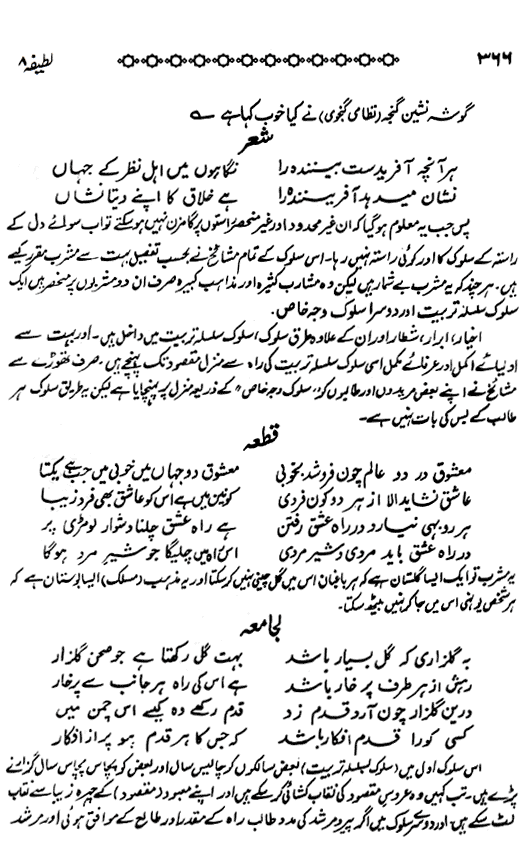 ۳۶۶ لطیفہ ۸
گوشہ نشین گنجہ (نظامی گنجوی) نے کیا خوب کہا ہے ؎
شعر
ہر آنچہ آفریدست بینندہ را نگاہوں میں اہل نظر کے جہاں
نشان میدہد آفرینندہ را ہے خلاق کا اپنے دیتا نشاں
پس جب یہ معلوم ہو گیا کہ ان غیر محدود اور غیر منحصر راستوں پر گامزن نہیں ہو سکتے تو اب سوائے دل کے
راستہ کے سلوک کا اور کوئی راستہ نہیں رہا۔ اس سلوک کے تمام مشائخ نے بحسب تفصیل بہت سے مشرب مقرر کیے
ہیں۔ ہر چند کہ یہ مشرب بے شمار ہیں لیکن وہ مشارب کثیرہ اور مذاہب کبیرہ صرف ان دو مشربوں پر منحصر ہیں ایک
سلوک سلسلہ تربیت اور دوسرا سلوک وجہ خاص۔
اخیار، ابرار، شطار اور ان کے علاوہ طرق سلوک، سلوک سلسلہ تربیت میں داخل ہیں۔ اور بہت سے
اولیائے اکمل اور عرفائے مکمل اسی سلوک سلسلہ تربیت کی راہ سے منزل مقصود تک پہنچے ہیں۔ صرف تھوڑے سے
مشائخ نے اپنے بعض مریدوں اور طالبوں کو "سلوک وجہ خاص" کے ذریعہ منزل پر پہنچایا ہے لیکن یہ طریق سلوک ہر
طالب کے بس کی بات نہیں ہے۔
قطعہ
معشوق در دو عالم چون فرد شد بخوبی معشوق دو جہاں میں خوبی میں جب ہے یکتا
عاشق نشاید الا از ہر دو کون فردی کونین میں ہے اس کو عاشق بھی فرد زیبا
ہر روبہی نیارد در راہ عشق رفتن ہے راہ عشق چلنا دشوار لومڑی پر
در راہ عشق باید مردی و شیر مردی اس راہ میں چلیگا جو شیر مرد ہو گا
یہ مشرب تو ایک ایسا گلستان ہے کہ ہر باغبان اس میں گل چینی نہیں کر سکتا اور یہ مذہب (مسلک) ایسا بوستان ہے کہ
ہر شخص یونہی اس میں جا کر نہیں بیٹھ سکتا۔
لجامعہ
بہ گلزاری کہ گل بسیار باشد بہت گل رکھتا ہے جو صحن گلزار
رہش از ہر طرف پر خار باشد ہے اس کی راہ ہر جانب سے پر خار
درین گلزار چون آرد قدم زد قدم رکھے وہ کیسے اس چمن میں
کسی کو را قدم افکار باشد کہ جس کا ہر قدم ہو پر از افکار
اس سلوک اول میں (سلوک سلسلہ تربیت) بعض سالکوں کو چالیس سال اور بعض کو پچاس پچاس سال گزارنے
پڑے ہیں۔ تب کہیں وہ عروس مقصود کی نقاب کشائی کر سکے ہیں اور اپنے معبود (مقصود) کے چہرہ زیبا سے نقاب
الٹ سکے ہیں۔ اور دوسرے سلوک میں اگر پیر و مرشد کی مدد طالب راہ کے مقدر اور طالع کے موافق ہوئی اور مرشد